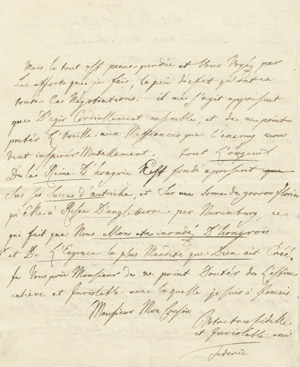 Mais le tout est peine perdüe et Vous Voyéz par
les efforts que je fais, le peu d'effet qu'ont eu
toute Ces Négotiations. il ne s'agit appresent
que D'agir Cordiallement ensemble, et de ne point
preter l'Oreille aux Méffiences que l'enemy nous
Veut inspirer Mutuellement. tout l'orgeuil
De la Reine D'hongrie Est fondé apresent
Sur les Forces d'autriche, et Sur une Some de
qu'Elle a Resçu D'angleterre par Nuremberg ce
qui fait que Nous Allons etre inondéz D'hongrois
et De l'Engence la plus Maudite que Dieu ait Créé,
je Vous prie Monsieur de ne point Douter de L'estime
entiere et Inviolable avec laquelle je suis a jamais
Monsieur Mon Cousin
Votre tres fidelle
et Inviolable ami
Federic